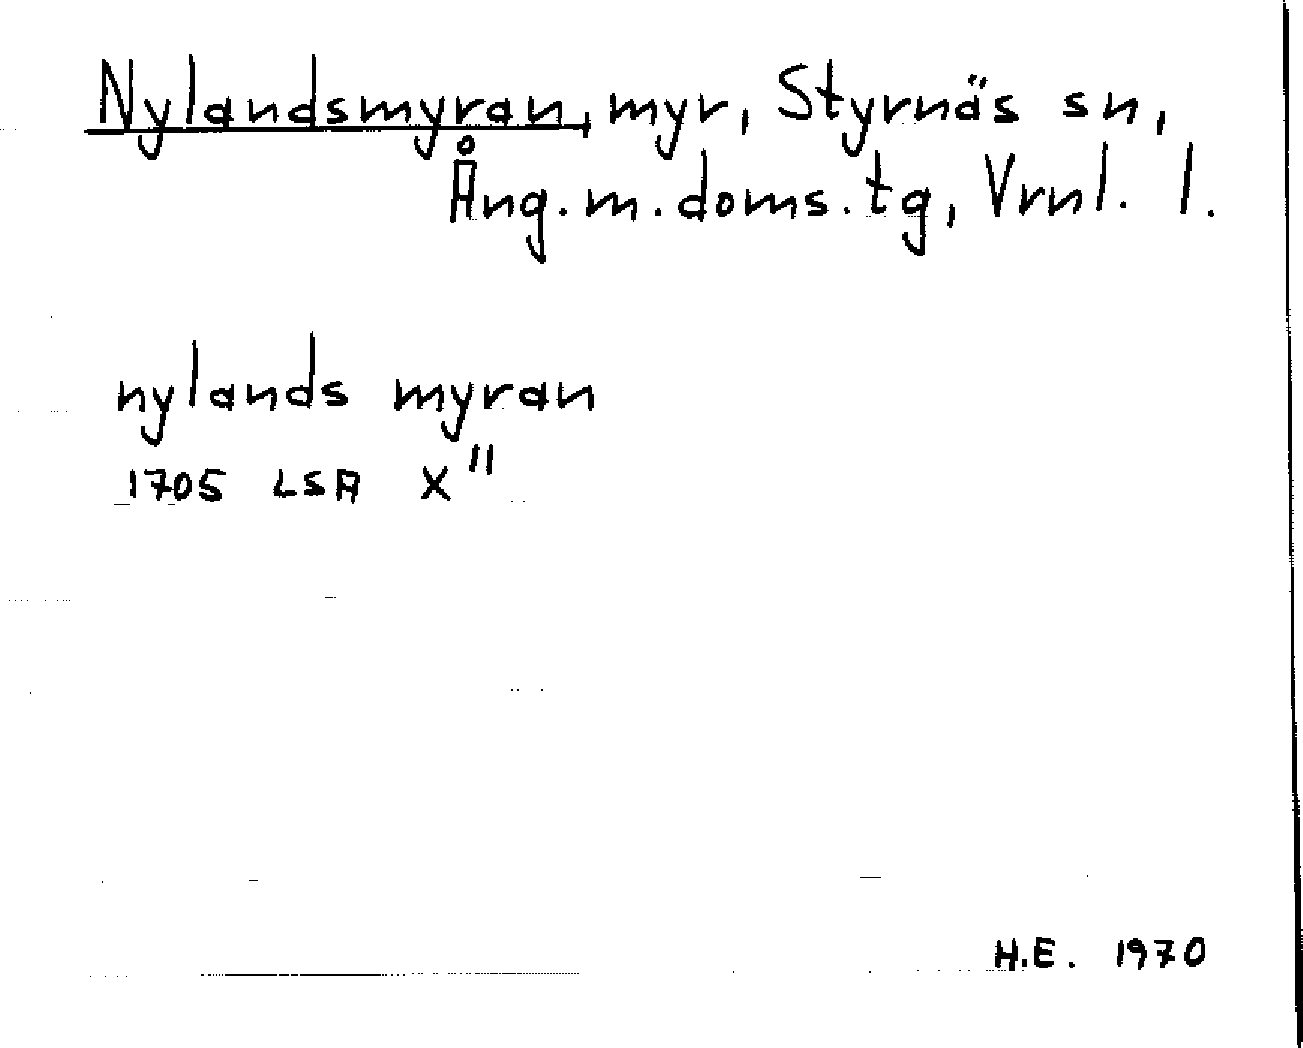 Nylandsmyran, myr, Styrnäs sn,
Ång. m. doms. tg, Vrnl. l.
nylands myran
1705 LSA X"
H.E. 1970